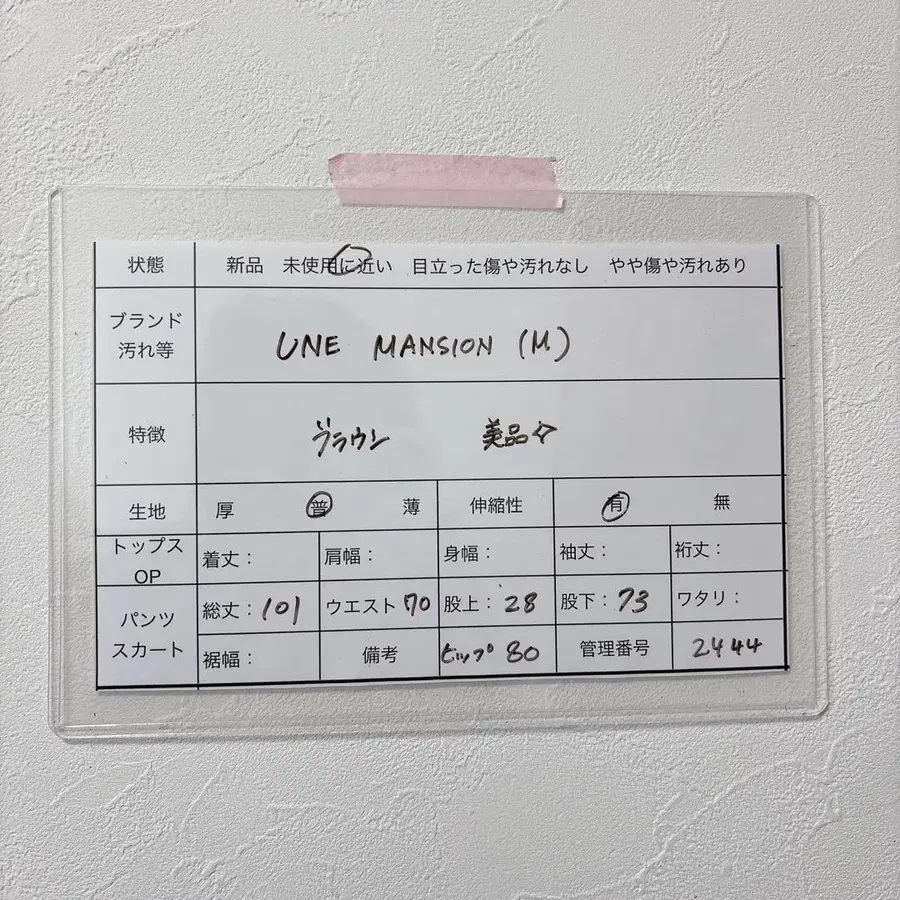 状態 新品 未使用に近い 目立った傷や汚れなし やや傷や汚れあり
ブランド
汚れ等
UNE MANSION (M)
特徴 ブラウン 美品☆
生地 厚 普 薄 伸縮性 有 無
トップス
OP
着丈： 肩幅： 身幅： 袖丈： 裄丈：
パンツ
スカート
総丈：101 ウエスト 70 股上：28 股下：73 ワタリ：
裾幅： 備考 ヒップ 80 管理番号 2444